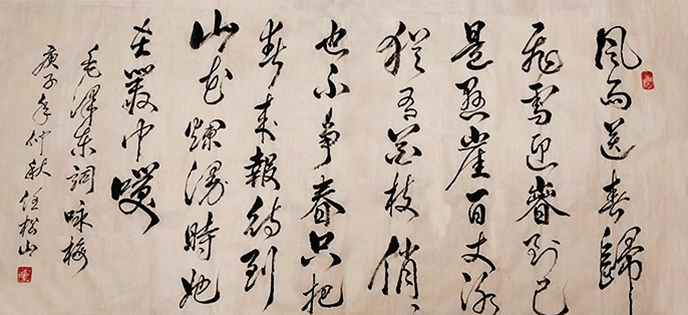 風雨送春歸
飛雪迎春到已
是懸崖百丈冰
猶有花枝俏、
也不爭春只把
春來報待到
山花爛漫時她
在叢中笑
毛澤東詞咏梅
庚子年仲秋任松山